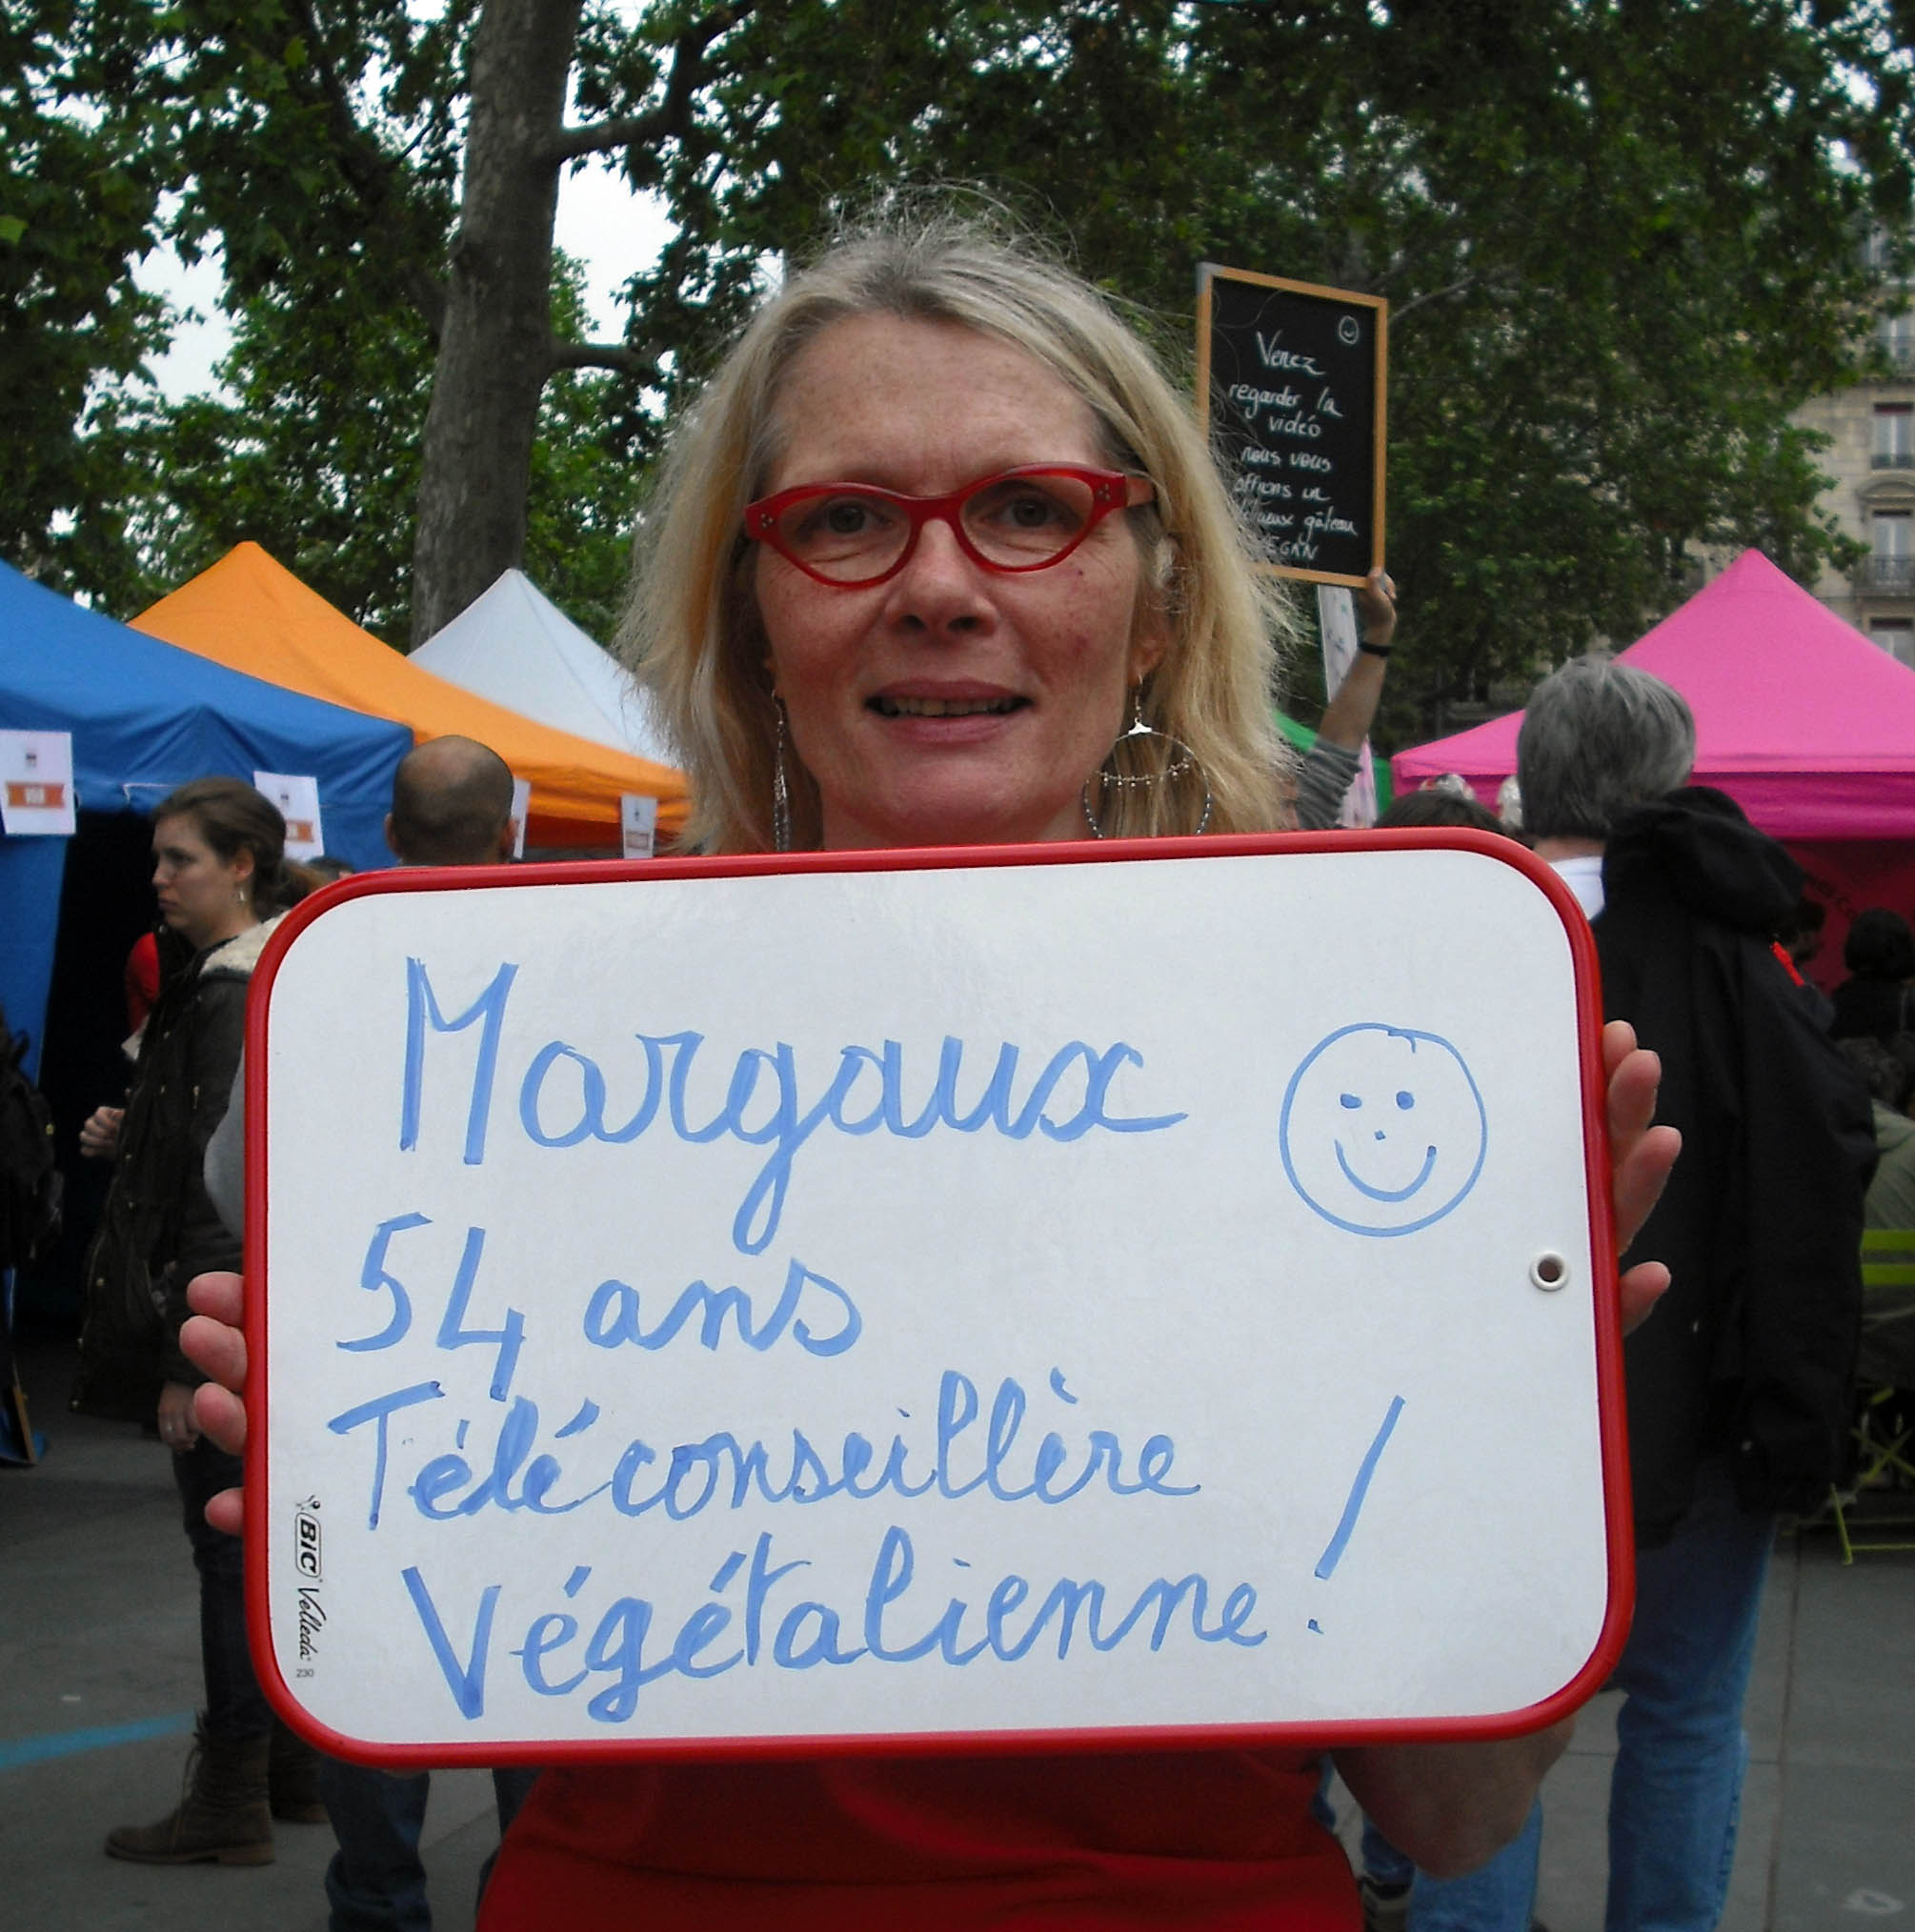 Venez
regarder la
vidéo
nous vous
offrons un
gâteau
Margaux
54 ans
Téléconseillère
Végétalienne !
BIC Velleda
230